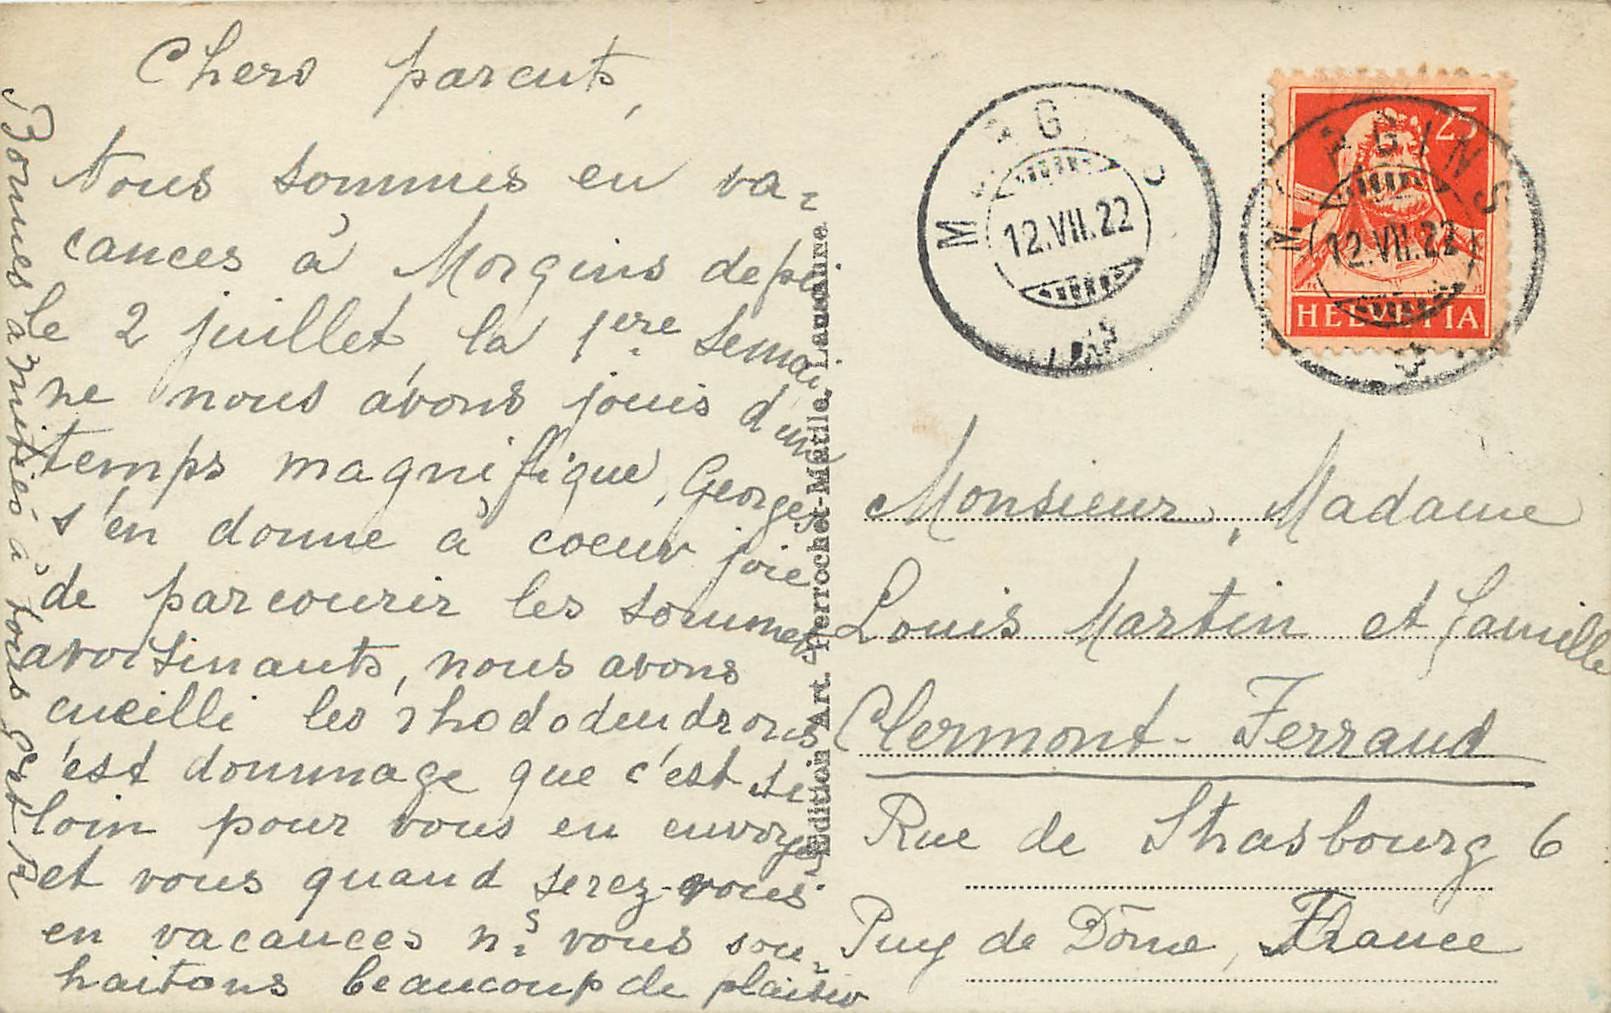 Chers parents,
Nous sommes en va-
cances à Morgins depui
le 2 juillet, la 1ere semai
ne nous avons jouis d'un
temps magnifique, Georges
s'en donne à coeur joie
de parcourir les sommets
avoisinants, nous avons
cueilli les rhododendrons
c'est dommage que c'est si
loin pour vous en envoyer
et vous quand serez-vous
en vacances ns. vous sou-
haitons beaucoup de plaisir
Bonnes amitiés à tous G et R
Edition Art. Perrochet-Matile, Lausanne.
MORGINS
12.VII.22
MORGINS
12.VII.22
25
HELVETIA
Monsieur, Madame
Louis Martin et famille
Clermont-Ferrand
Rue de Strasbourg 6
Puy de Dôme, France